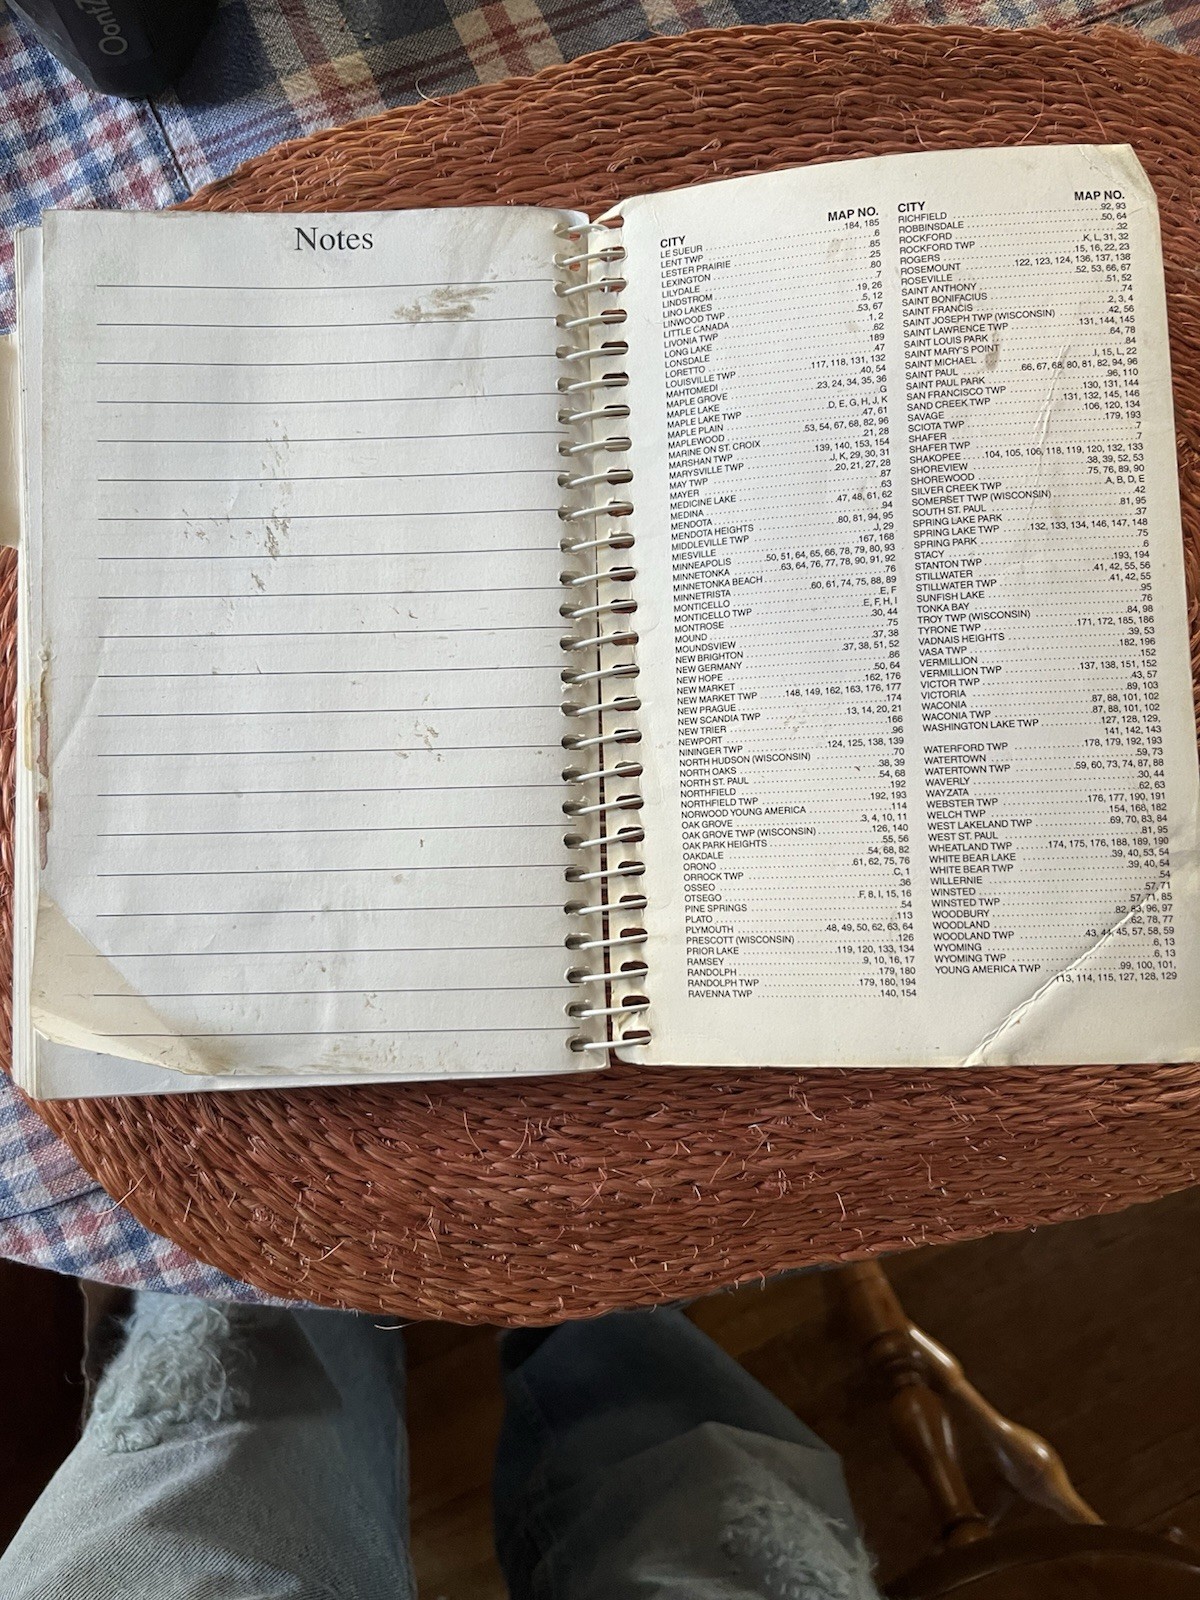 Notes
CITY MAP NO.
LE SUEUR 184, 185
LENT TWP 6
LESTER PRAIRIE 85
LEXINGTON 25
LILYDALE 80
LINDSTROM 7
LINO LAKES 19, 26
LINWOOD TWP 5, 12
LITTLE CANADA 53, 67
LIVONIA TWP 1, 2
LONG LAKE 62
LONSDALE 189
LORETTO 47
LOUISVILLE TWP 117, 118, 131, 132
MAHTOMEDI 40, 54
MAPLE GROVE 23, 24, 34, 35, 36
MAPLE LAKE G
MAPLE LAKE TWP D, E, G, H, J, K
MAPLE PLAIN 47, 61
MAPLEWOOD 53, 54, 67, 68, 82, 96
MARINE ON ST. CROIX 21, 28
MARSHAN TWP 139, 140, 153, 154
MARYSVILLE TWP J, K, 29, 30, 31
MAY TWP 20, 21, 27, 28
MAYER 87
MEDICINE LAKE 63
MEDINA 47, 48, 61, 62
MENDOTA 94
MENDOTA HEIGHTS 80, 81, 94, 95
MIDDLEVILLE TWP J, 29
MIESVILLE 167, 168
MINNEAPOLIS 50, 51, 64, 65, 66, 78, 79, 80, 93
MINNETONKA 63, 64, 76, 77, 78, 90, 91, 92
MINNETONKA BEACH 76
MINNETRISTA 60, 61, 74, 75, 88, 89
MONTICELLO E, F
MONTICELLO TWP E, F, H, I
MONTROSE 30, 44
MOUND 75
MOUNDSVIEW 37, 38
NEW BRIGHTON 37, 38, 51, 52
NEW GERMANY 86
NEW HOPE 50, 64
NEW MARKET 162, 176
NEW MARKET TWP 148, 149, 162, 163, 176, 177
NEW PRAGUE 174
NEW SCANDIA TWP 13, 14, 20, 21
NEW TRIER 166
NEWPORT 96
NININGER TWP 124, 125, 138, 139
NORTH HUDSON (WISCONSIN) 70
NORTH OAKS 38, 39
NORTH ST. PAUL 54, 68
NORTHFIELD 192
NORTHFIELD TWP 192, 193
NORWOOD YOUNG AMERICA 114
OAK GROVE 3, 4, 10, 11
OAK GROVE TWP (WISCONSIN) 126, 140
OAK PARK HEIGHTS 55, 56
OAKDALE 54, 68, 82
ORONO 61, 62, 75, 76
ORROCK TWP C, 1
OSSEO 36
OTSEGO F, B, I, 15, 16
PINE SPRINGS 54
PLATO 113
PLYMOUTH 48, 49, 50, 62, 63, 64
PRESCOTT (WISCONSIN) 126
PRIOR LAKE 119, 120, 133, 134
RAMSEY 9, 10, 16, 17
RANDOLPH 179, 180
RANDOLPH TWP 179, 180, 194
RAVENNA TWP 140, 154
CITY MAP NO.
RICHFIELD 92, 93
ROBBINSDALE 50, 64
ROCKFORD 32
ROCKFORD TWP K, L, 31, 32
ROGERS 15, 16, 22, 23
ROSEMOUNT 122, 123, 124, 136, 137, 138
ROSEVILLE 52, 53, 66, 67
SAINT ANTHONY 51, 52
SAINT BONIFACIUS 74
SAINT FRANCIS 2, 3, 4
SAINT JOSEPH TWP (WISCONSIN) 42, 56
SAINT LAWRENCE TWP 131, 144, 145
SAINT LOUIS PARK 64, 78
SAINT MARY'S POINT 84
SAINT MICHAEL I, 15, L, 22
SAINT PAUL 66, 67, 68, 80, 81, 82, 94, 96
SAINT PAUL PARK 96, 110
SAN FRANCISCO TWP 130, 131, 144
SAND CREEK TWP 131, 132, 145, 146
SAVAGE 106, 120, 134
SCIOTA TWP 179, 193
SHAFER 7
SHAFER TWP 7
SHAKOPEE 104, 105, 106, 118, 119, 120, 132, 133
SHOREVIEW 38, 39, 52, 53
SHOREWOOD 75, 76, 89, 90
SILVER CREEK TWP A, B, D, E
SOMERSET TWP (WISCONSIN) 42
SOUTH ST. PAUL 81, 95
SPRING LAKE PARK 37
SPRING LAKE TWP 132, 133, 134, 146, 147, 148
SPRING PARK 75
STACY 6
STANTON TWP 193, 194
STILLWATER 41, 42, 55, 56
STILLWATER TWP 41, 42, 55
SUNFISH LAKE 95
TONKA BAY 76
TROY TWP (WISCONSIN) 84, 98
TYRONE TWP 171, 172, 185, 186
VADNAIS HEIGHTS 39, 53
VASA TWP 182, 196
VERMILLION 152
VERMILLION TWP 137, 138, 151, 152
VICTOR TWP 43, 57
VICTORIA 89, 103
WACONIA 87, 88, 101, 102
WACONIA TWP 87, 88, 101, 102
WASHINGTON LAKE TWP 127, 128, 129,
141, 142, 143
WATERFORD TWP 178, 179, 192, 193
WATERTOWN 59, 73
WATERTOWN TWP 59, 60, 73, 74, 87, 88
WAVERLY 30, 44
WAYZATA 62, 63
WEBSTER TWP 176, 177, 190, 191
WELCH TWP 154, 168, 182
WEST LAKELAND TWP 69, 70, 83, 84
WEST ST. PAUL 81, 95
WHEATLAND TWP 174, 175, 176, 188, 189, 190
WHITE BEAR LAKE 39, 40, 53, 54
WHITE BEAR TWP 39, 40, 54
WILLERNIE 54
WINSTED 57, 71
WINSTED TWP 57, 71, 85
WOODBURY 82, 83, 96, 97
WOODLAND 62, 78, 77
WOODLAND TWP 43, 44, 45, 57, 58, 59
WYOMING 6, 13
WYOMING TWP 6, 13
YOUNG AMERICA TWP 99, 100, 101,
113, 114, 115, 127, 128, 129